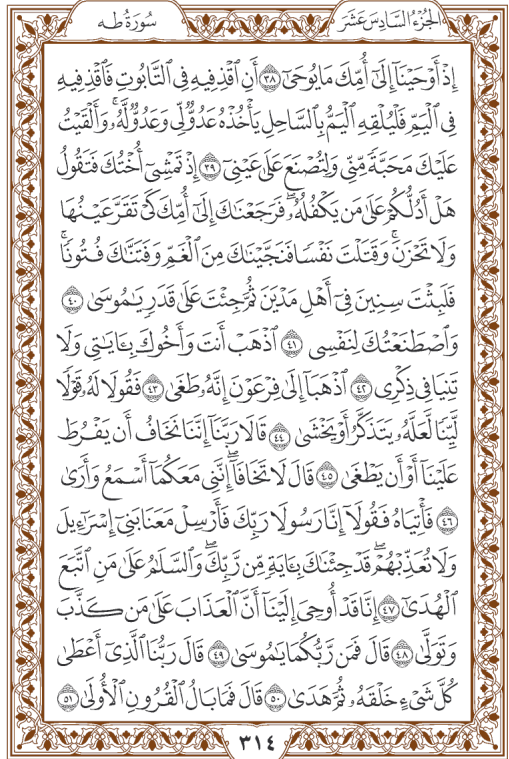 الجُزْءُ السَّادِسَ عَشَرَ
سُورَةُ طه
إِذْ أَوْحَيْنَآ إِلَىٰٓ أُمِّكَ مَا يُوحَىٰٓ ٣٨ أَنِ ٱقْذِفِيهِ فِي ٱلتَّابُوتِ فَٱقْذِفِيهِ
فِي ٱلْيَمِّ فَلْيُلْقِهِ ٱلْيَمُّ بِٱلسَّاحِلِ يَأْخُذْهُ عَدُوٌّ لِّي وَعَدُوٌّ لَّهُۥ ۚ وَأَلْقَيْتُ
عَلَيْكَ مَحَبَّةً مِّنِّي وَلِتُصْنَعَ عَلَىٰ عَيْنِيٓ ٣٩ إِذْ تَمْشِيٓ أُخْتُكَ فَتَقُولُ
هَلْ أَدُلُّكُمْ عَلَىٰ مَن يَكْفُلُهُۥ ۖ فَرَجَعْنَٰكَ إِلَىٰٓ أُمِّكَ كَيْ تَقَرَّ عَيْنُهَا
وَلَا تَحْزَنَ ۚ وَقَتَلْتَ نَفْسًا فَنَجَّيْنَٰكَ مِنَ ٱلْغَمِّ وَفَتَنَّٰكَ فُتُونًا ۚ
فَلَبِثْتَ سِنِينَ فِيٓ أَهْلِ مَدْيَنَ ثُمَّ جِئْتَ عَلَىٰ قَدَرٍ يَٰمُوسَىٰ ٤٠
وَٱصْطَنَعْتُكَ لِنَفْسِي ٤١ ٱذْهَبْ أَنتَ وَأَخُوكَ بِـَٔايَٰتِي وَلَا
تَنِيَا فِي ذِكْرِي ٤٢ ٱذْهَبَآ إِلَىٰ فِرْعَوْنَ إِنَّهُۥ طَغَىٰ ٤٣ فَقُولَا لَهُۥ قَوْلًا
لَّيِّنًا لَّعَلَّهُۥ يَتَذَكَّرُ أَوْ يَخْشَىٰ ٤٤ قَالَا رَبَّنَآ إِنَّنَا نَخَافُ أَن يَفْرُطَ
عَلَيْنَآ أَوْ أَن يَطْغَىٰ ٤٥ قَالَ لَا تَخَافَآ ۖ إِنَّنِي مَعَكُمَآ أَسْمَعُ وَأَرَىٰ
٤٦ فَأْتِيَاهُ فَقُولَآ إِنَّا رَسُولَا رَبِّكَ فَأَرْسِلْ مَعَنَا بَنِيٓ إِسْرَٰٓءِيلَ
وَلَا تُعَذِّبْهُمْ ۖ قَدْ جِئْنَٰكَ بِـَٔايَةٍ مِّن رَّبِّكَ ۖ وَٱلسَّلَٰمُ عَلَىٰ مَنِ ٱتَّبَعَ
ٱلْهُدَىٰٓ ٤٧ إِنَّا قَدْ أُوحِيَ إِلَيْنَآ أَنَّ ٱلْعَذَابَ عَلَىٰ مَن كَذَّبَ
وَتَوَلَّىٰ ٤٨ قَالَ فَمَن رَّبُّكُمَا يَٰمُوسَىٰ ٤٩ قَالَ رَبُّنَا ٱلَّذِيٓ أَعْطَىٰ
كُلَّ شَيْءٍ خَلْقَهُۥ ثُمَّ هَدَىٰ ٥٠ قَالَ فَمَا بَالُ ٱلْقُرُونِ ٱلْأُولَىٰ ٥١
٣١٤